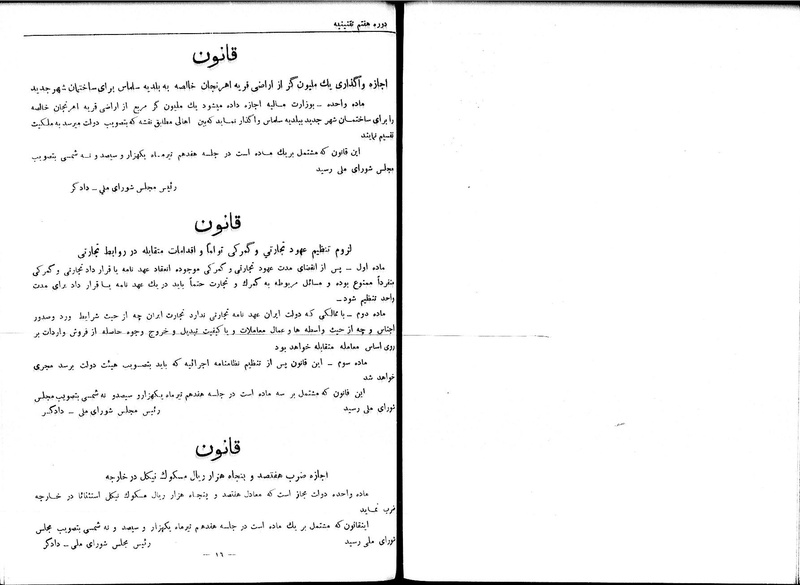 دوره هفتم تقنینیه
قانون
اجازه واگذاری یك ملیون گز از اراضی قریه اهرنجان خالصه به بلدیه سلماس برای ساختمان شهر جدید
ماده واحده ـ بوزارت مالیه اجازه داده میشود یك ملیون گز مربع از اراضی قریه اهرنجان خالصه
را برای ساختمان شهر جدید ببلدیه سلماس واگذار نماید که بین اهالی مطابق نقشه که بتصویب دولت میرسد به ملکیت
تقسیم نمایند
این قانون که مشتمل بر یك ماده است در جلسه هفدهم تیرماه یکهزار و سیصد و نه شمسی بتصویب
مجلس شورای ملی رسید
رئیس مجلس شورای ملی ـ دادگر
قانون
لزوم تنظیم عهود تجارتی و گمرکی تواماً و اقدامات متقابله در روابط تجارتی
ماده اول ـ پس از انقضای مدت عهود تجارتی و گمرکی موجوده انعقاد عهد نامه یا قرار داد تجارتی و گمرکی
منفرداً ممنوع بوده و مسائل مربوطه به گمرك و تجارت حتماً باید در یك عهد نامه یا قرار داد برای مدت
واحد تنظیم شود ـ
ماده دوم ـ با ممالکی که دولت ایران عهد نامه تجارتی ندارد تجارت ایران چه از حیث شرایط ورود وصدور
اجناس و چه از حیث واسطه ها و عمال معاملات و یا کیفیت تبدیل و خروج وجوه حاصله از فروش واردات بر
روی اساس معامله متقابله خواهد بود
ماده سوم ـ این قانون پس از تنظیم نظامنامه اجرائیه که باید بتصویب هیئت دولت برسد مجری
خواهد شد
این قانون که مشتمل بر سه ماده است در جلسه هفدهم تیرماه یکهزار و سیصدو نه شمسی بتصویب مجلس
شورای ملی رسید رئیس مجلس شورای ملی ـ دادگر
قانون
اجازه ضرب هفتصد و پنجاه هزار ریال مسکوك نیکل در خارجه
ماده واحده دولت مجاز است که معادل هفتصد و پنجاه هزار ریال مسکوك نیکل استثنائا در خارجه
ضرب نماید
اینقانون که مشتمل بر یك ماده است در جلسه هفدهم تیرماه یکهزار و سیصد و نه شمسی بتصویب مجلس
شورای ملی رسید رئیس مجلس شورای ملی ـ دادگر
— ١٦ —